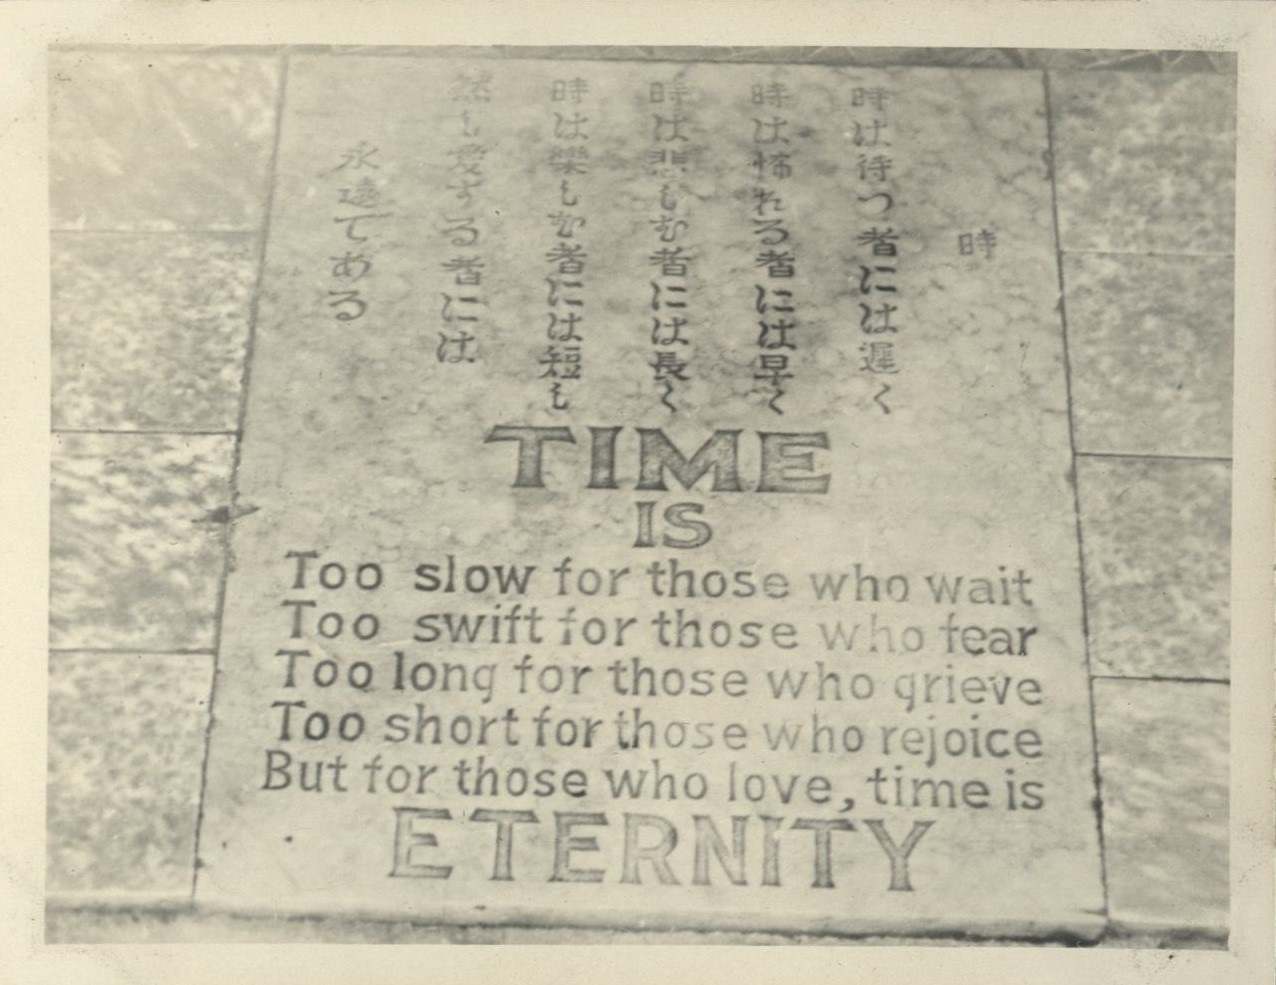 時
時は待つ者には遅く
時は怖れる者には早く
時は悲しむ者には長く
時は楽しむ者には短し
然し愛する者には
永遠である
TIME
IS
Too slow for those who wait
Too swift for those who fear
Too long for those who grieve
Too short for those who rejoice
But for those who love, time is
ETERNITY